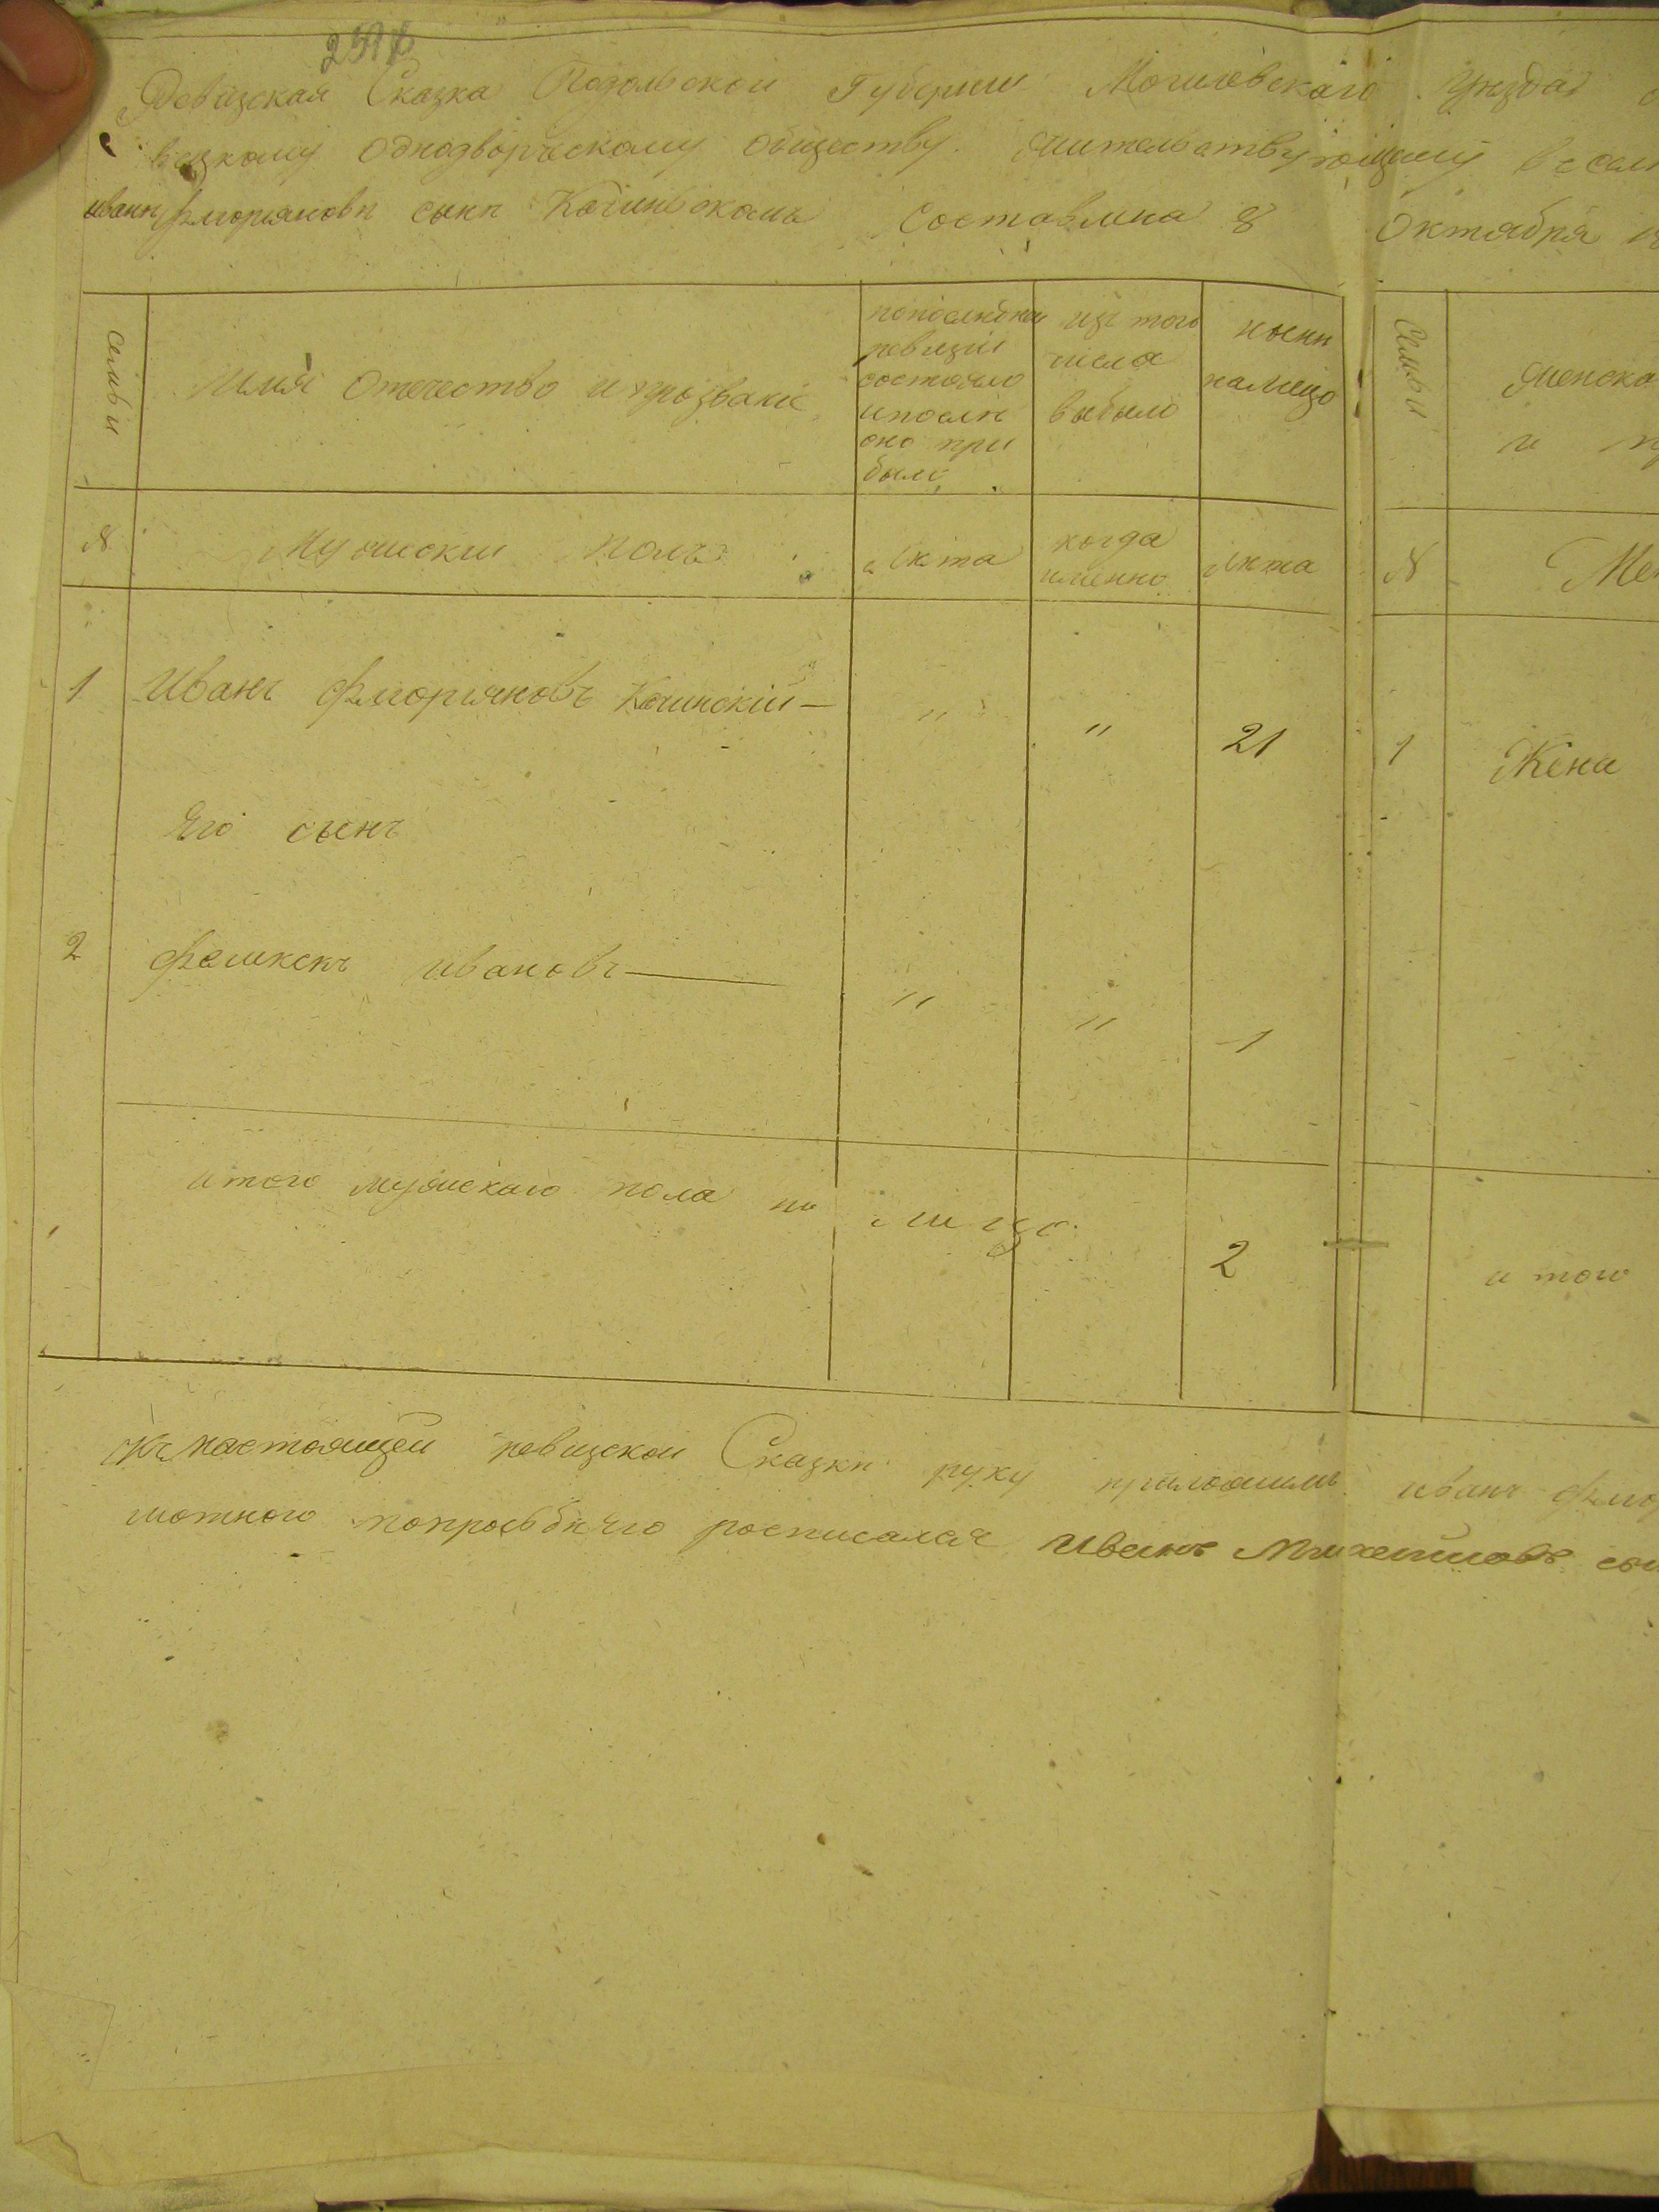 Ревизская Сказка Подольской Губернии Могилевскаго Уезда
вецкому однодворческому обществу жительствующему в сел
иване Флорияновѣ сынѣ Качинскомъ Составлена 8 Октября
семьи
Имя Отечество и прозваніе
по последней
ревизіи
состояло
и послѣ
оно при
было
изъ того
числа
выбыло
нынѣ
на лицо
Семьи
Женска
и
№
Мужеский полъ
лѣта
когда
именно
лѣта
№
1 Иванъ Флорияновъ Качинскій — " " 21 1 Жена
Его сынъ
2 Феликсъ ивановъ — " " 1
итого мужескаго пола на лицо
2
и того
Къ настоящей ревизской Сказки руку приложилъ иванъ
мотного по просьбѣ его росписался Иванъ Михайловъ